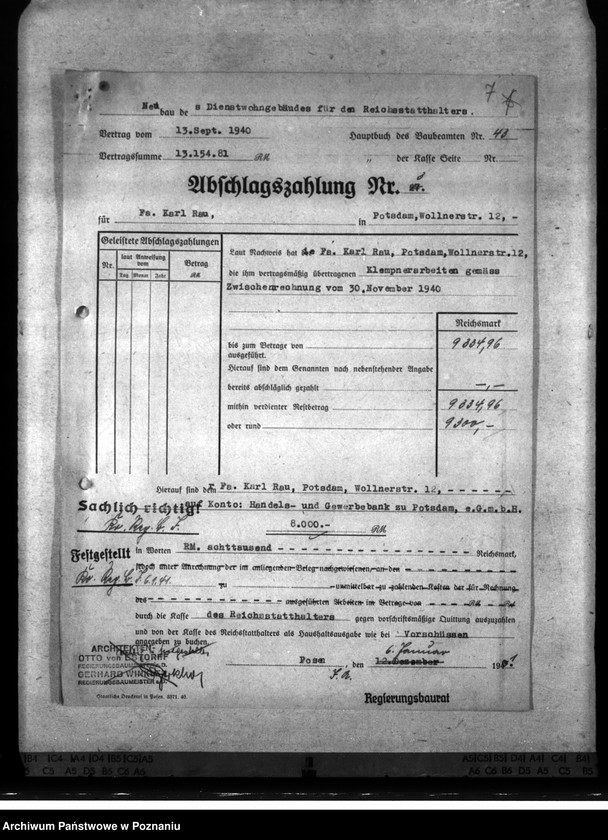 7
Neubau des Dienstwohngebäudes für den Reichsstatthalters.
Vertrag vom 13.Sept. 1940 Hauptbuch des Baubeamten Nr. 43
Vertragssumme 13.154.81 RM „ der Kasse Seite Nr.
Abschlagszahlung Nr.
für Fa. Karl Rau, in Potsdam,Wollnerstr. 12, -
Geleistete Abschlagszahlungen
Nr. laut Anweisung vom Betrag
Tag Monat Jahr RM
Laut Nachweis hat Fa. Karl Rau, Potsdam,Wollnerstr.12,
die ihm vertragsmäßig übertragenen Klempnerarbeiten gemäss
Zwischenrechnung vom 30.November 1940
Reichsmark
bis zum Betrage von 9334,96
ausgeführt.
Hierauf sind dem Genannten nach nebenstehender Angabe
bereits abschläglich gezahlt —,—
mithin verdienter Restbetrag 9334,96
oder rund 9300,—
Hierauf sind der Fa. Karl Rau, Potsdam, Wollnerstr. 12, - - - - - -
Sachlich richtig!
auf Konto: Handels- und Gewerbebank zu Potsdam, e.G.m.b.H.
8.000.- RM
Festgestellt
in Worten RM. achttausend - - - - - - - - - - Reichsmark,
jedoch unter Anrechnung der im anliegenden Beleg nachgewiesenen an den
zu unmittelbar zu zahlenden Kosten der für Rechnung
des ausgeführten Arbeiten im Betrage von RM Rpf
durch die Kasse des Reichsstatthalters gegen vorschriftsmäßige Quittung auszuzahlen
und von der Kasse des Reichsstatthalters als Haushaltsausgabe wie bei Vorschüssen
angegeben zu buchen.
ARCHITEKTEN
OTTO von ESTORFF
REGIERUNGSBAUMEISTER a.D.
GERHARD WINKLER
REGIERUNGSBAUMEISTER a.D.
6. Januar
Posen, den 12.Dezember 1941
Regierungsbaurat
Staatliche Druckerei in Posen. 5071. 40.
Archiwum Państwowe w Poznaniu